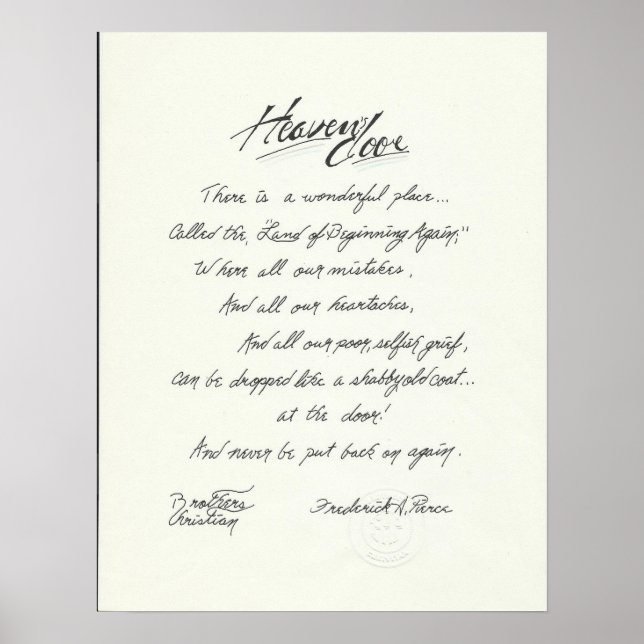 Heaven's door
There is a wonderful place...
Called the, "Land of Beginning Again,"
Where all our mistakes,
And all our heartaches,
And all our poor, selfish grief,
can be dropped like a shabby old coat...
at the door!
And never be put back on again.
Brothers
Christian
Frederick A. Pierce